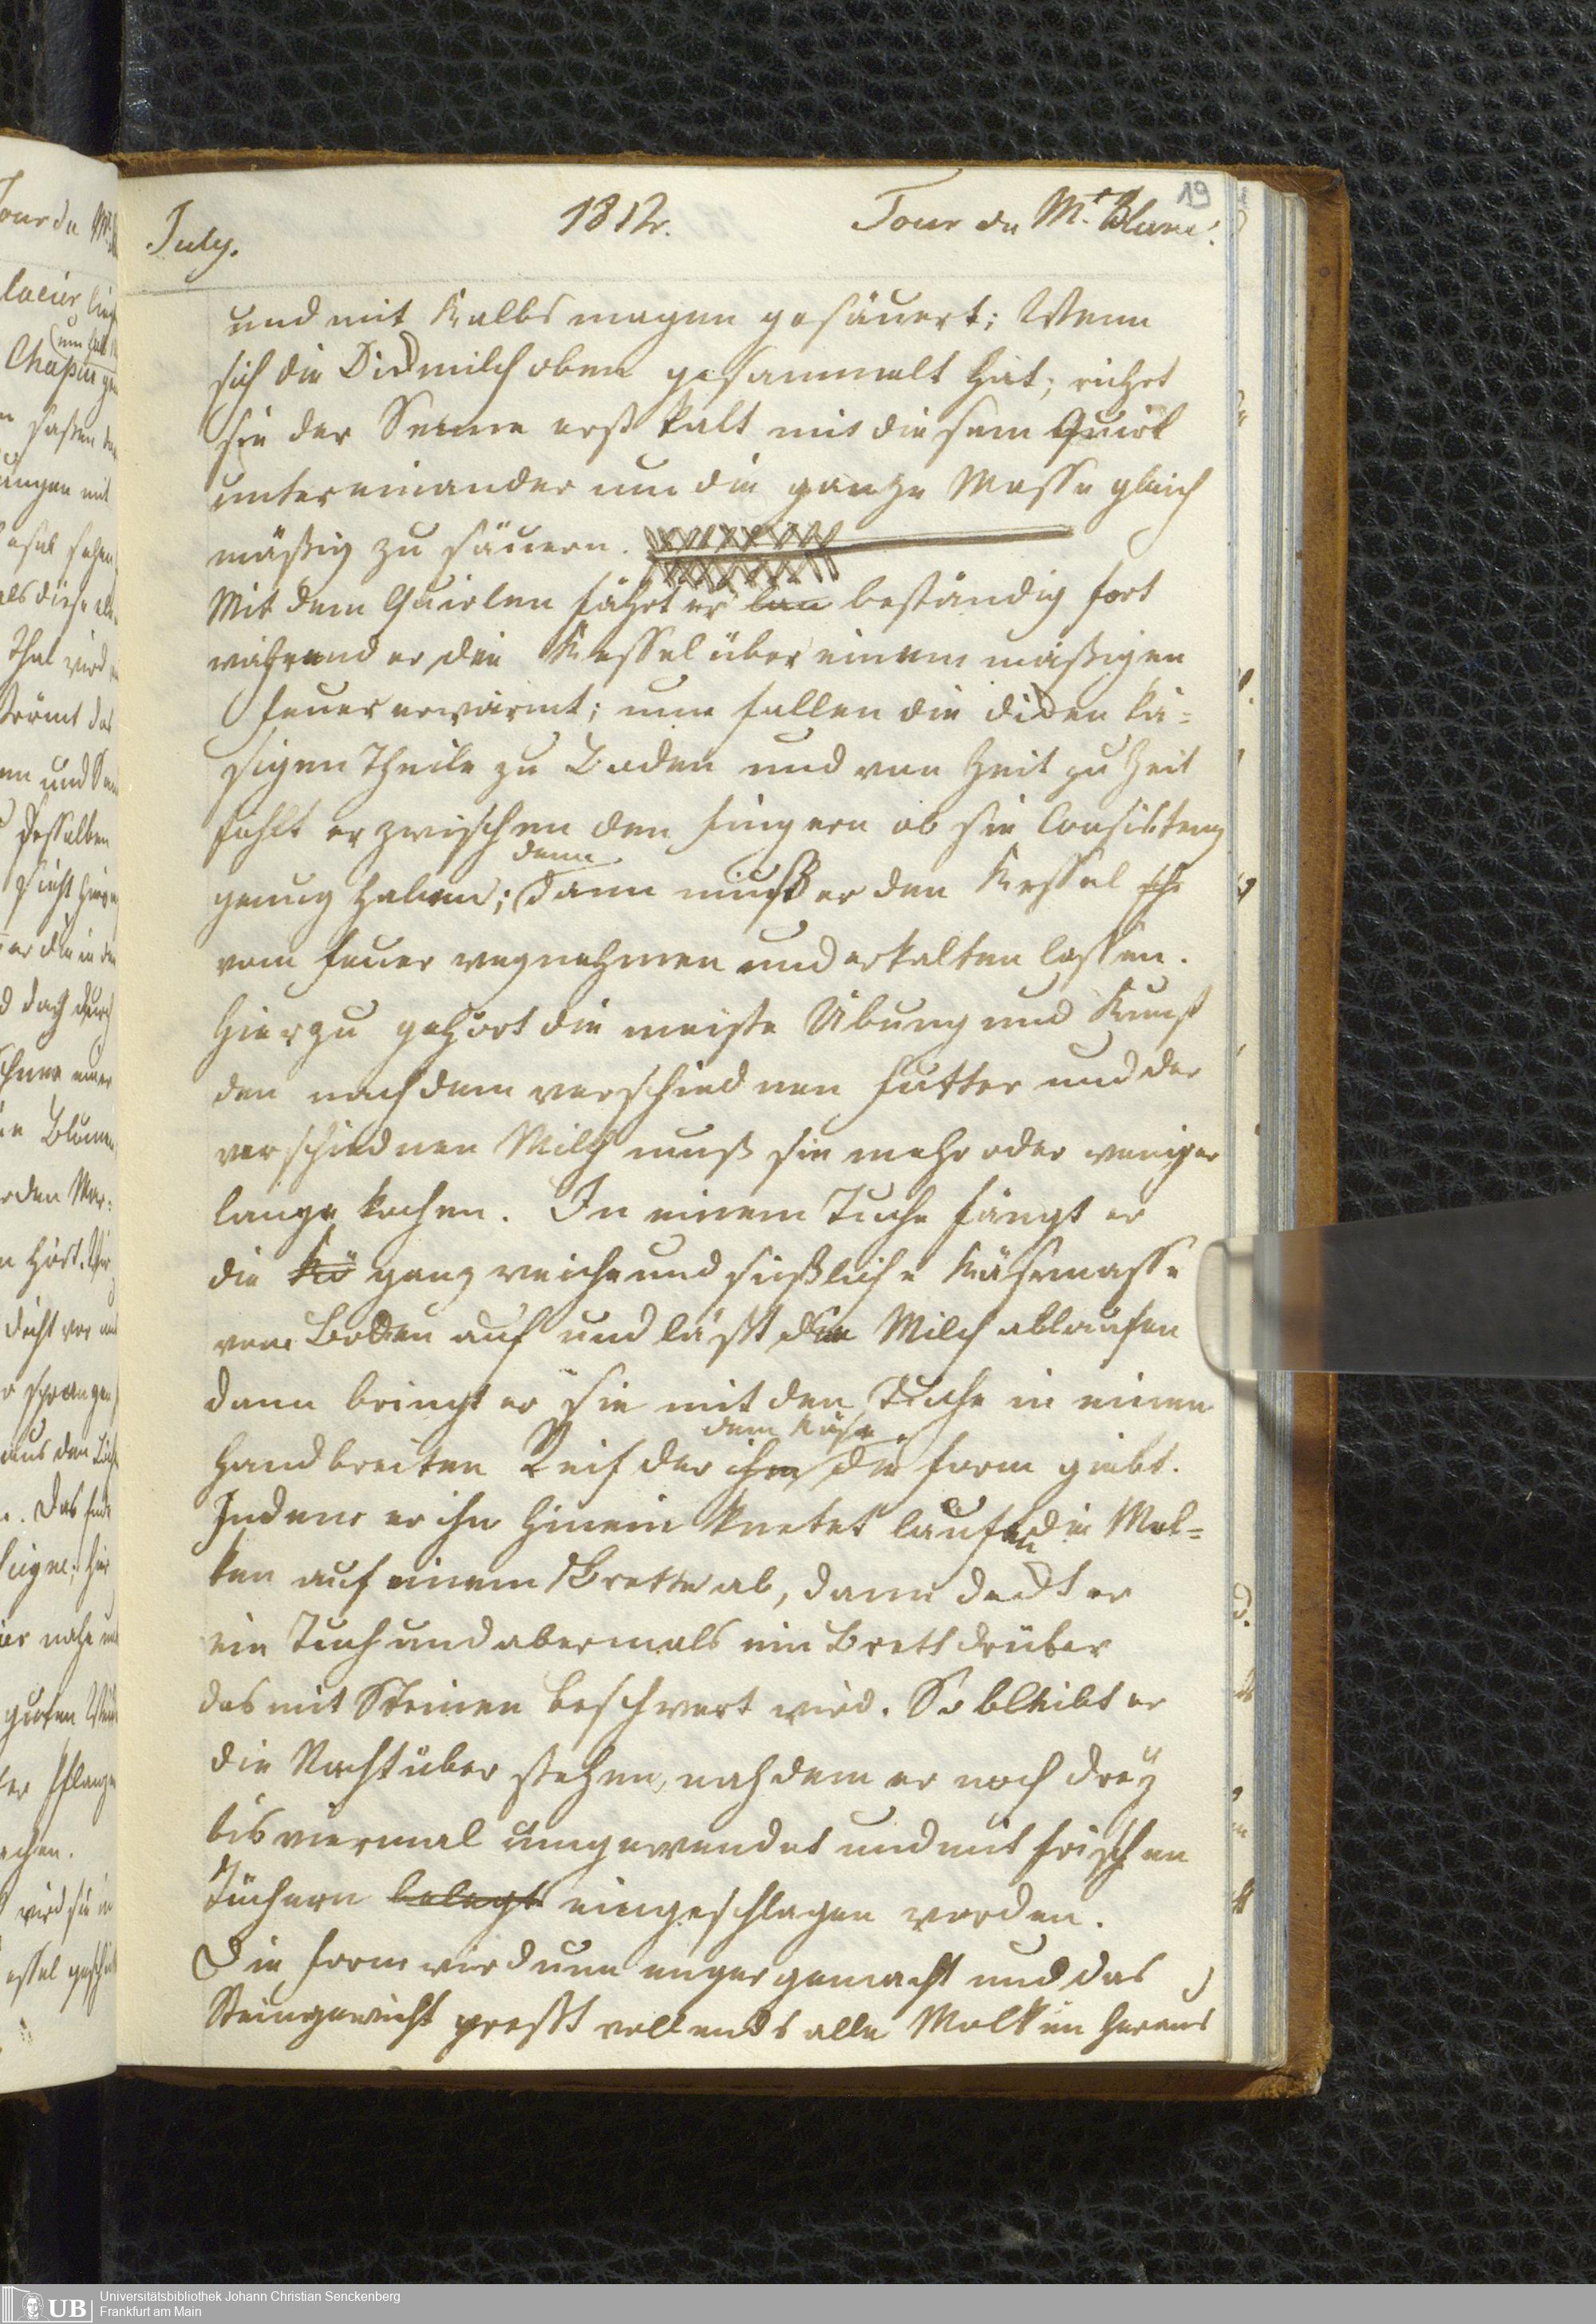 19
July.
1812.
Tour du Mt. Blanc.
und mit Kalbsmagen gesäuert; Wenn
sich die Dickmilch oben gesammelt hat; rührt
sie der Senne erst kalt mit diesem Quirl
untereinander um die ganze Masse gleich
mäßig zu säuern.
Mit dem Quirlen fährt er beständig fort
während er die Kessel über einem mäßigen
Feuer erwärmt; nun fallen die dicken kä=
sigen Theile zu Boden und von Zeit zu Zeit
fühlt er zwischen den Fingern ob sie Consistenz
denn
genug haben; dann muß er den Kessel
vom Feuer wegnehmen und erkalten lassen.
Hierzu gehört die meiste Übung und Kunst
den nach dem verschiednen Futter und der
verschiednen Milch muß sie mehr oder weniger
lange kochen. In einem Tuche fängt er
die kä ganz weiche und süßliche Käsemasse
vom Boden auf und läßt die Milch ablaufen
dann bringt er sie mit den Tuche in einen
dem Käse
handbreiten Reif der ihm die Form giebt.
Indem er ihn hinein knetet laufen die Mol=
ken auf einem Brette ab, dann deckt er
ein Tuch und abermals ein Brett drüber
das mit Steinen beschwert wird. So bleibt er
die Nacht über stehen, nachdem er noch drey
bis viermal umgewendet und mit frischen
Tüchern belegt eingeschlagen worden.
Die Form wird nun enger gemacht und das
Steingewicht preßt vollends alle Molken heraus
UB
Universitätsbibliothek Johann Christian Senckenberg
Frankfurt am Main